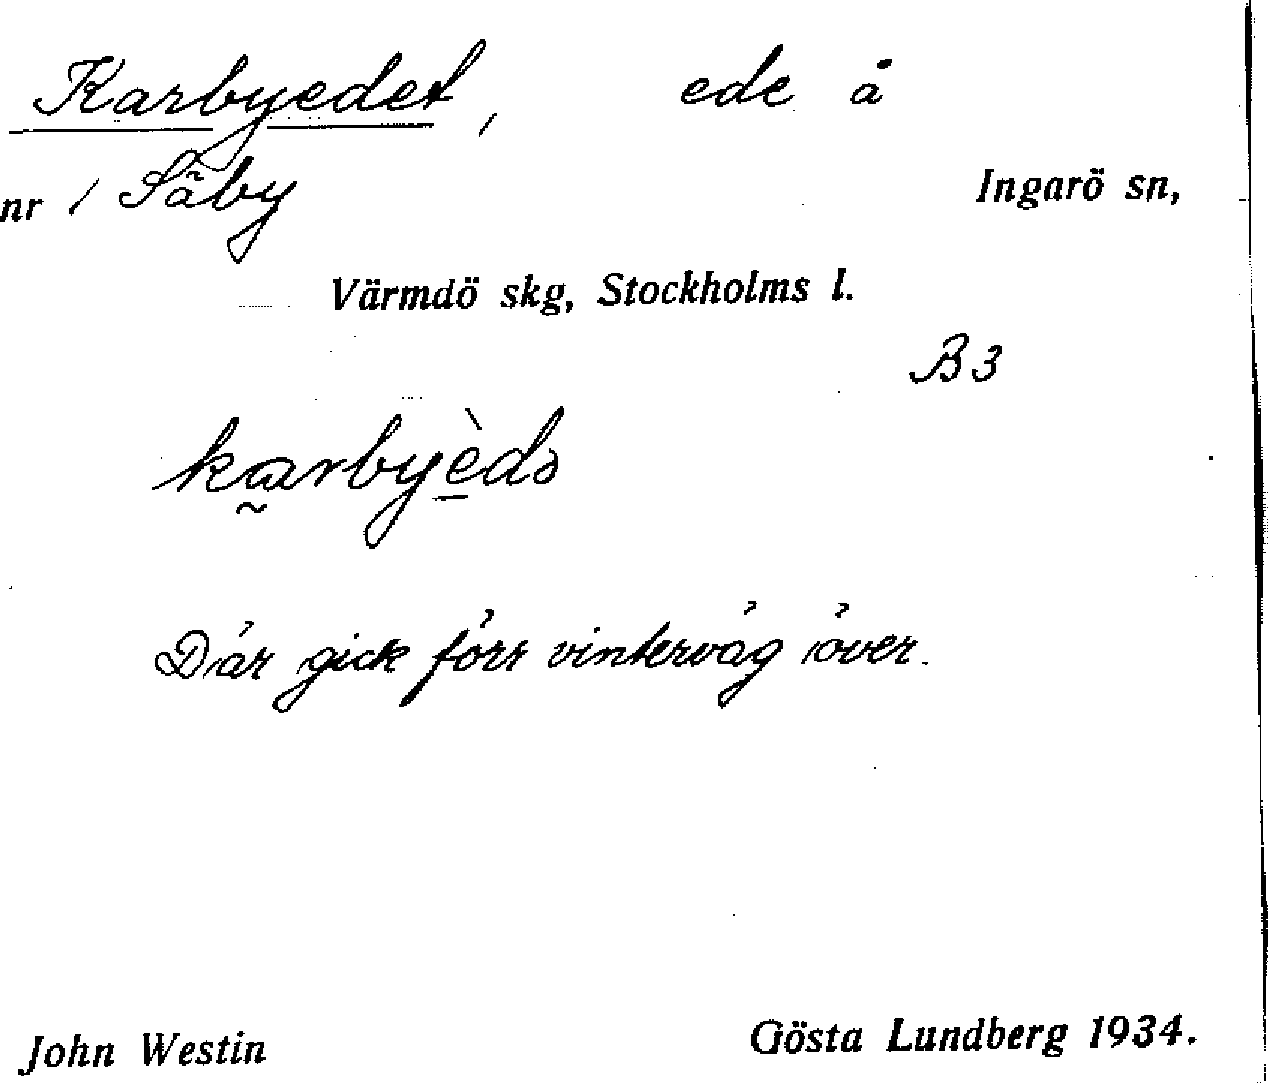 Karbyedet, ede å
nr 1 Säby Ingarö sn,
Värmdö skg, Stockholms l.
B3
karbyèdə
Där gick förr vinterväg över.
John Westin Gösta Lundberg 1934.